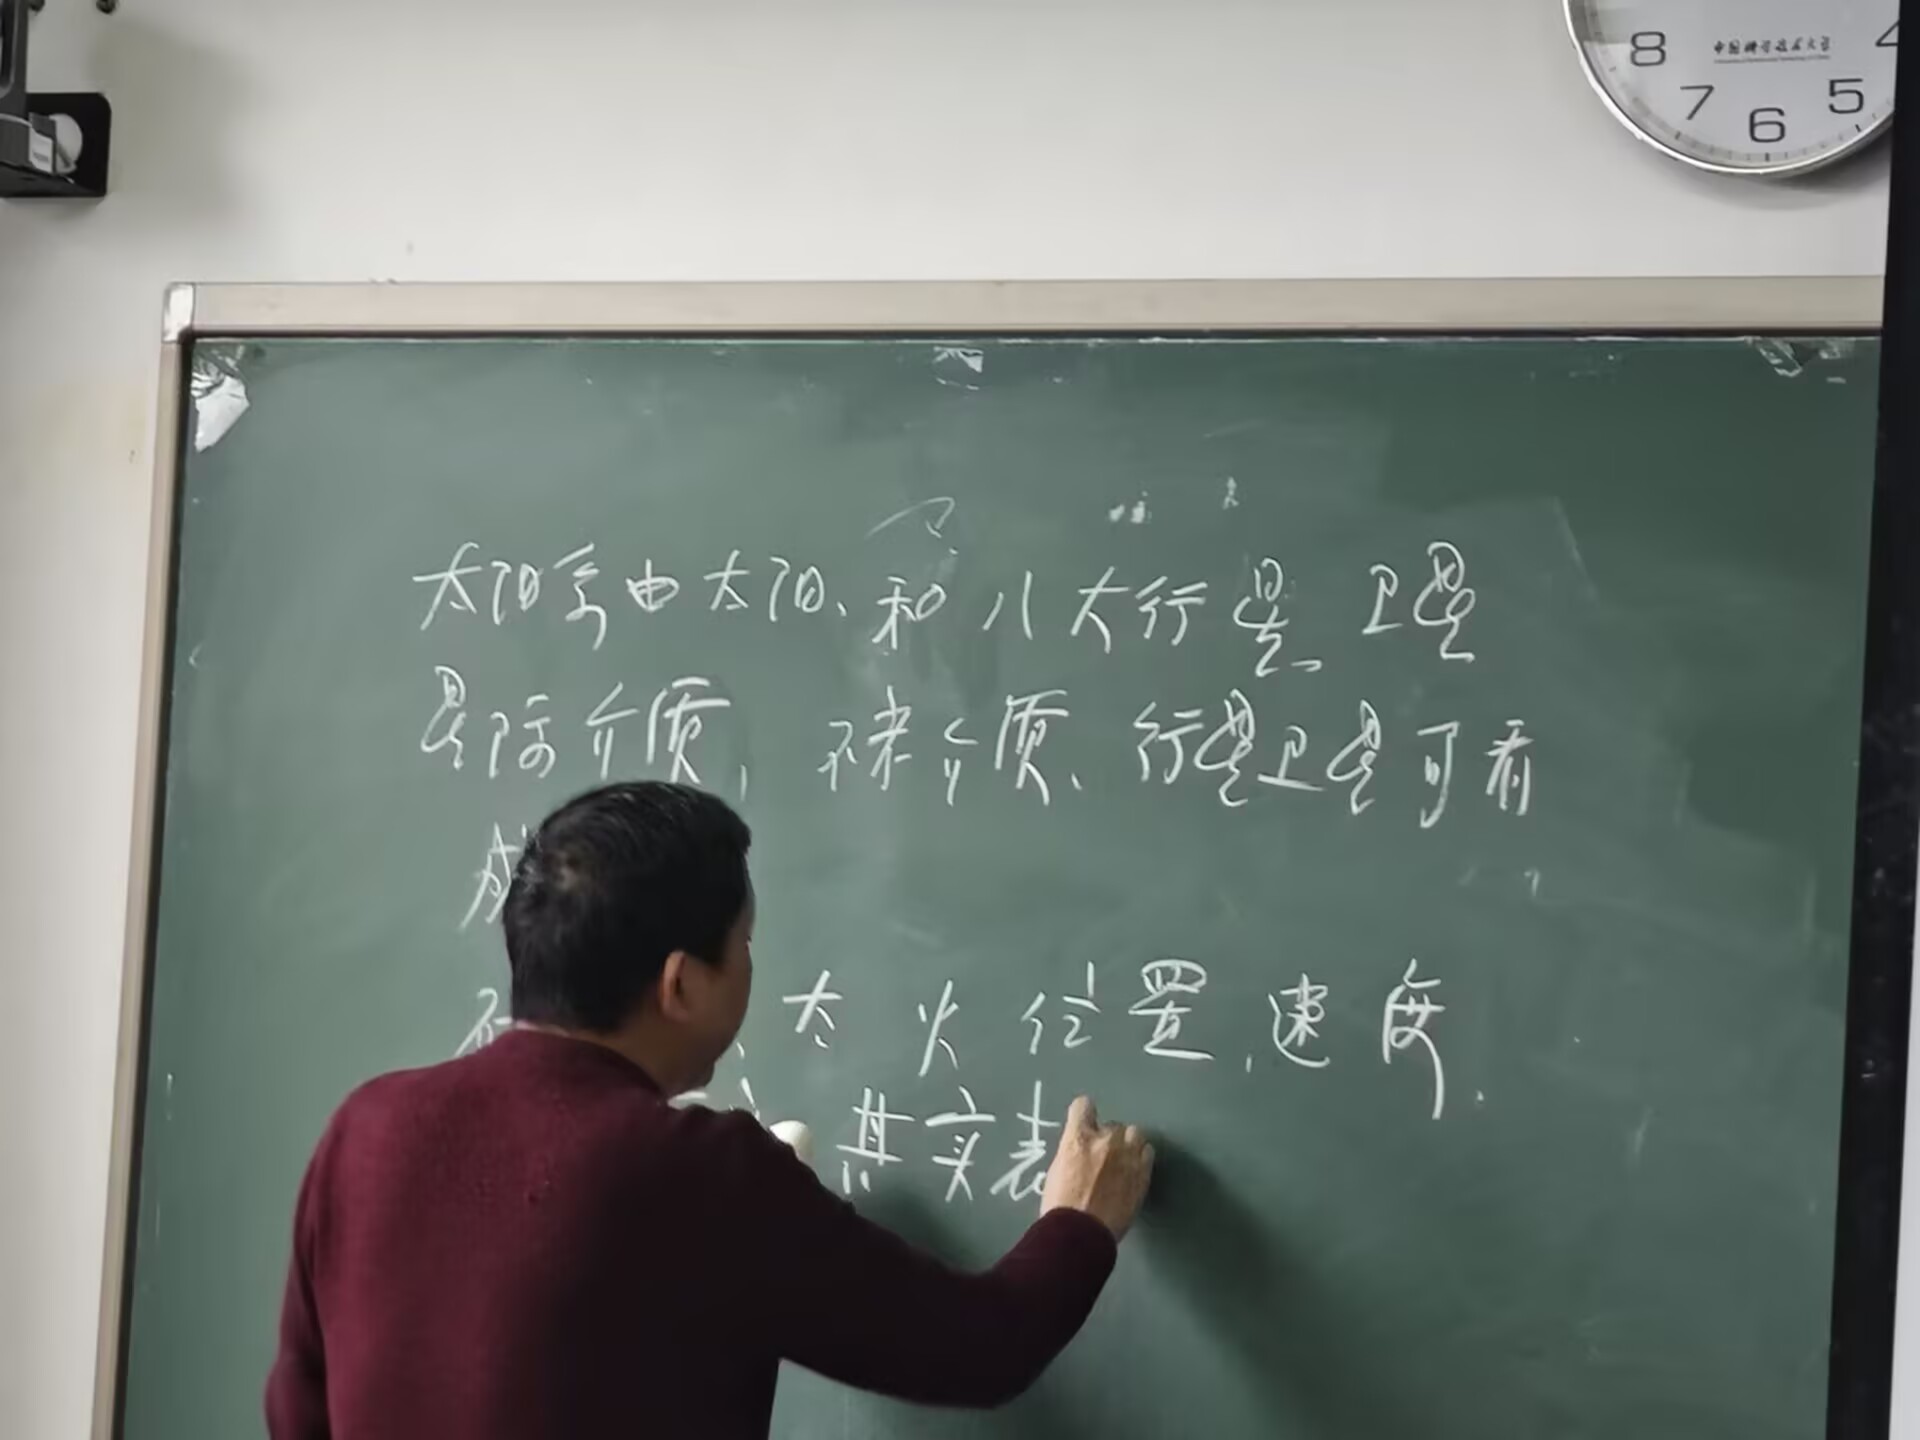 8 中国科学技术大学 4
7 6 5
太阳系由太阳、和八大行星 卫星
星际介质, 不考介质、行星卫星可看
成
在 太 火 位置,速度.
其实表